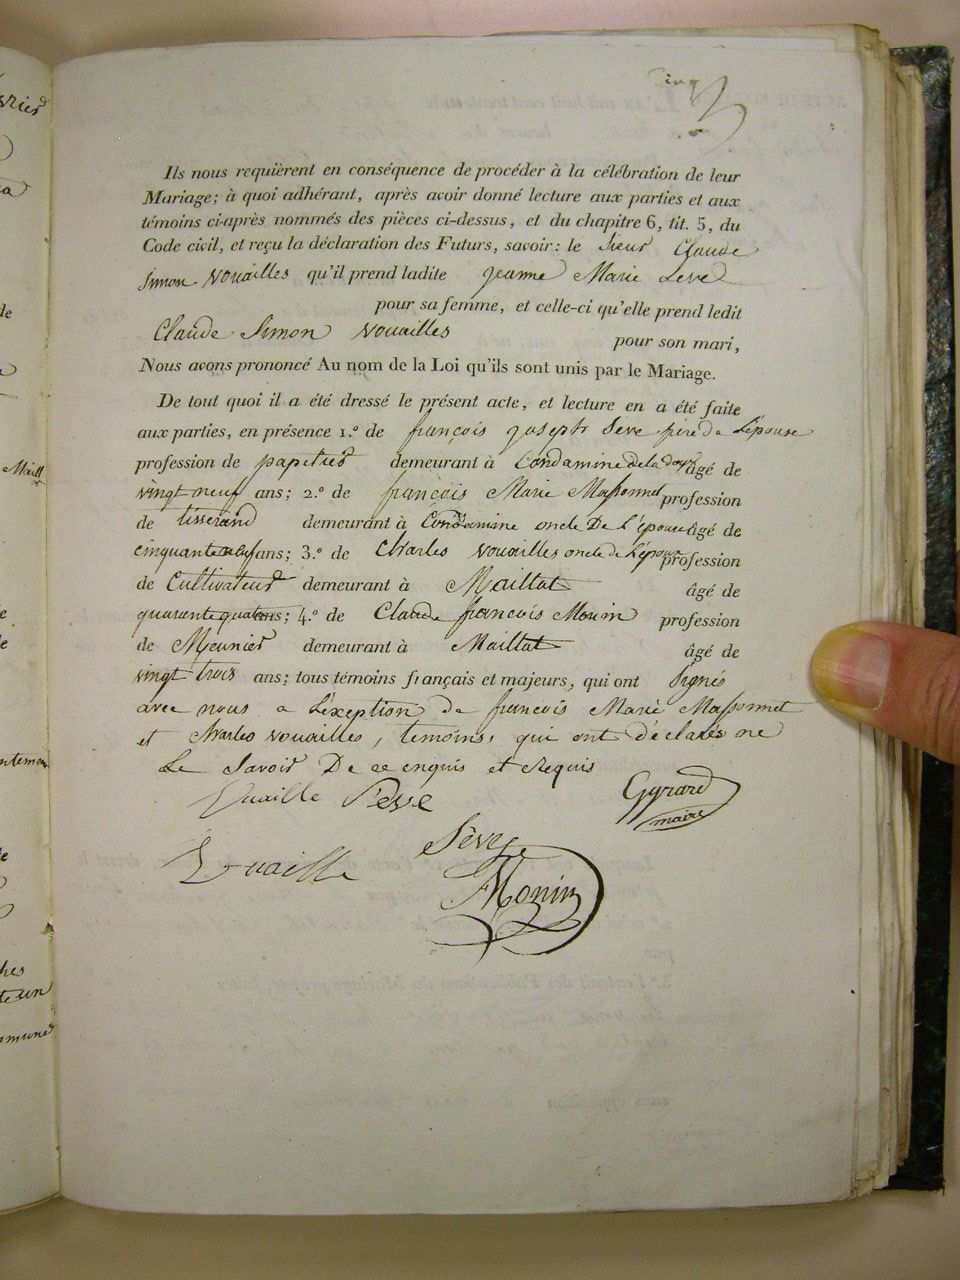 Cinq
Ils nous requièrent en conséquence de procéder à la célébration de leur
Mariage; à quoi adhérant, après avoir donné lecture aux parties et aux
témoins ci-après nommés des pièces ci-dessus, et du chapitre 6, tit. 5, du
Code civil, et reçu la déclaration des Futurs, savoir: le Sieur Claude
Simon Vouailles qu'il prend ladite Jeanne Marie Seve
pour sa femme, et celle-ci qu'elle prend ledit
Claude Simon Vouailles pour son mari,
Nous avons prononcé Au nom de la Loi qu'ils sont unis par le Mariage.
De tout quoi il a été dressé le présent acte, et lecture en a été faite
aux parties, en présence 1.º de françois Joseph Seve frère de L'épouse
profession de papetier demeurant à Condamine de la doye âgé de
vingt neuf ans; 2.º de françois Marie Massonnet profession
de tisserand demeurant à Condamine oncle De L'épouse âgé de
cinquante neuf ans; 3.º de Charles Vouailles oncle de L'époux profession
de Cultivateur demeurant à Maillat âgé de
quarante quatre ans; 4.º de Claude françois Monin profession
de Meunier demeurant à Maillat âgé de
vingt trois ans; tous témoins français et majeurs, qui ont Signés
avec nous a L'éxeption de françois Marie Massonnet
et Charles Vouailles, temoins, qui ont déclarés ne
Le Savoir De ce enquis et Requis
Vuaille Seve Gyrard
maire
Sève
Vuaille
Monin